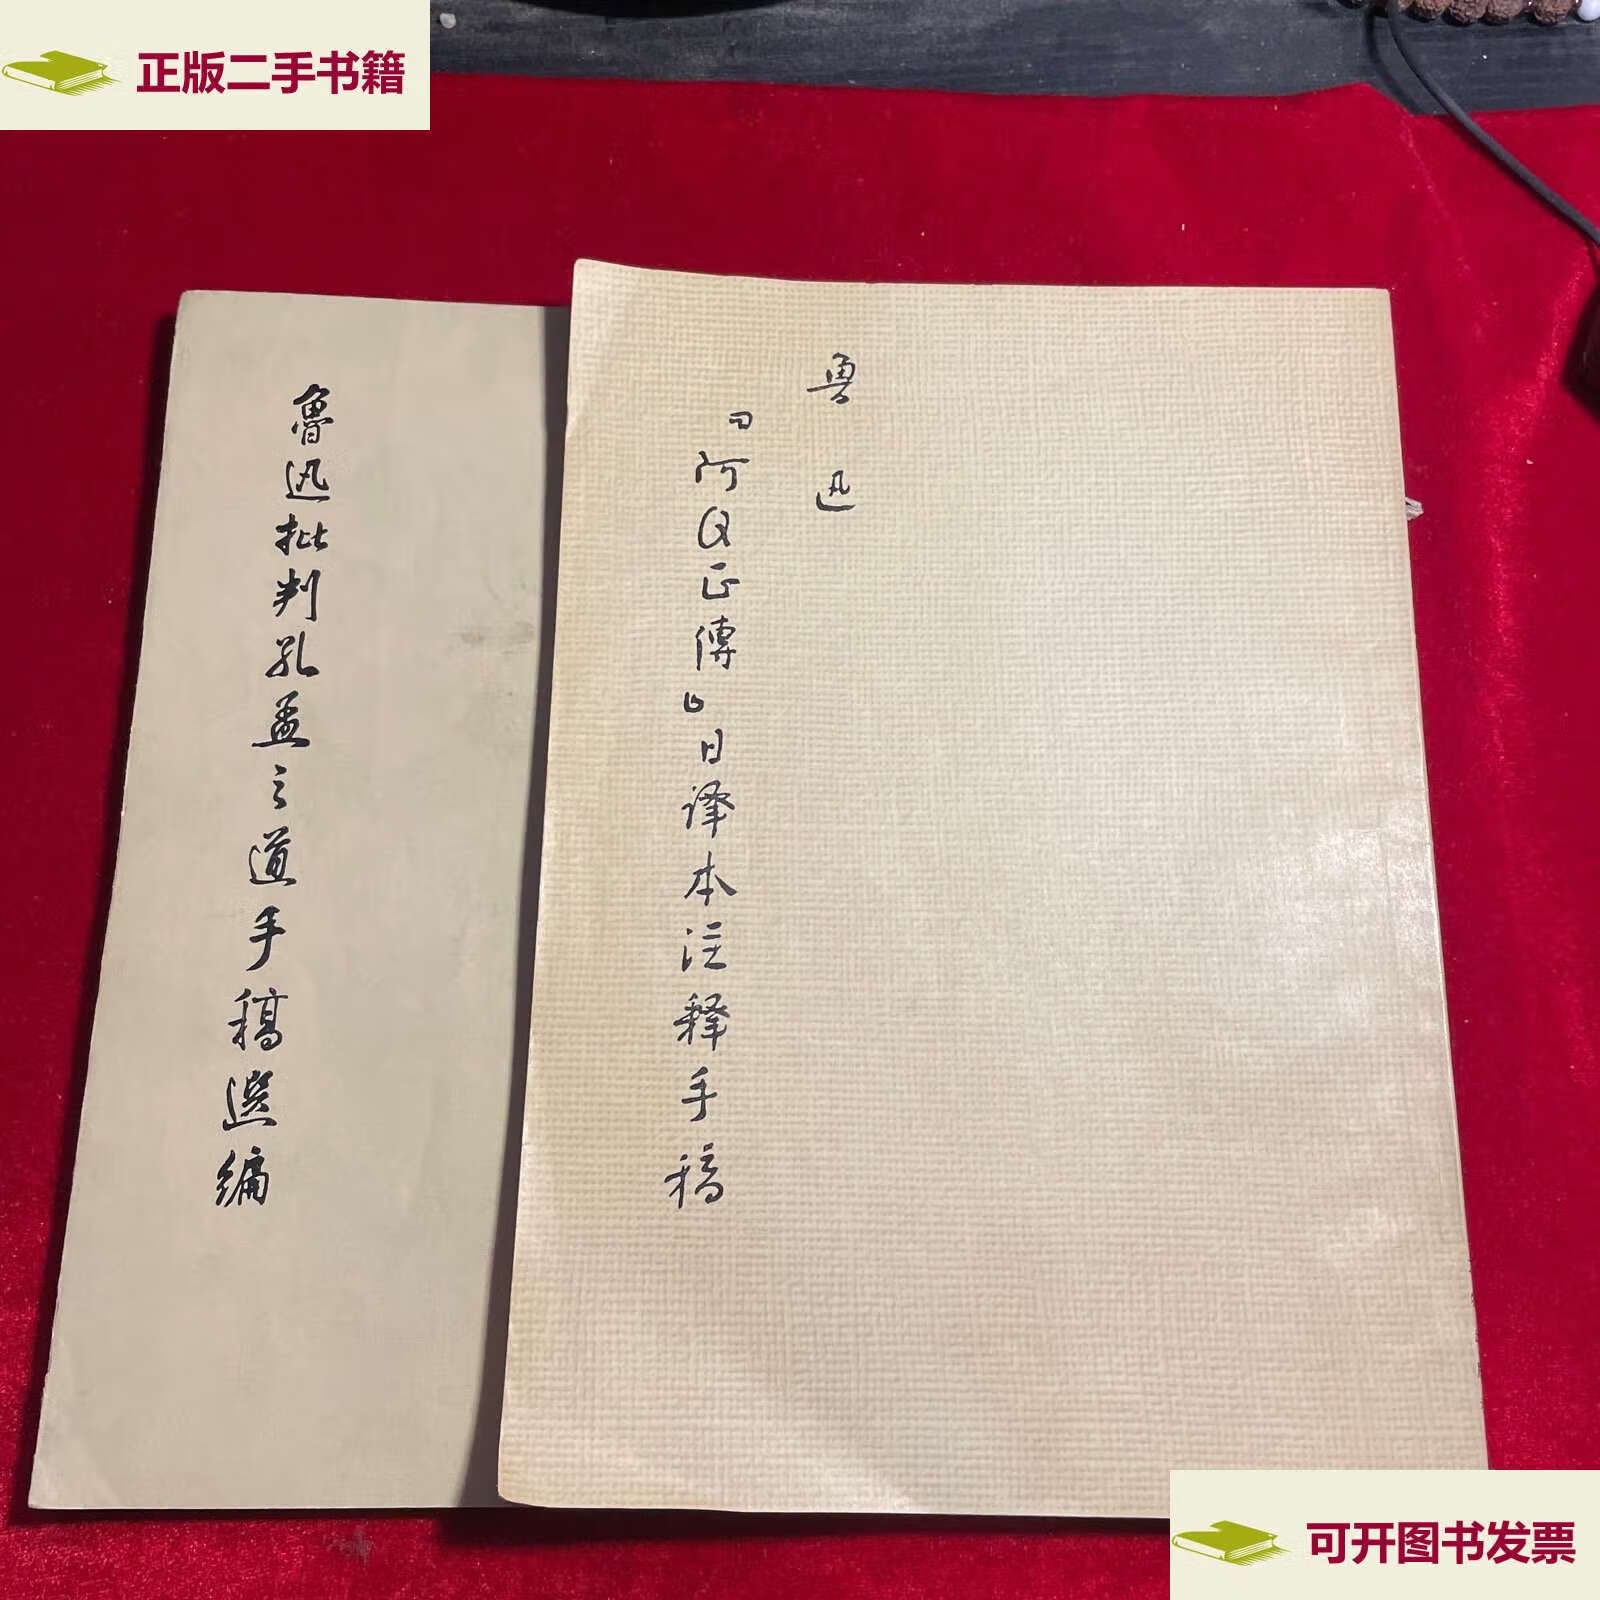 正版二手书籍
魯迅批判孔孟之道手稿選编
魯迅
『阿Q正傳』日译本注释手稿
可开图书发票